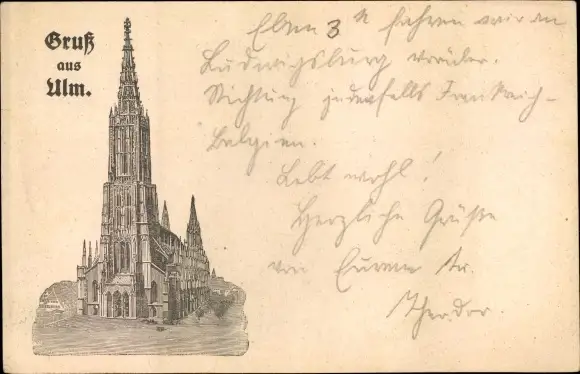 Gruß
aus
Ulm.
Eben 3 h fahren wir an
Ludwigsburg vorüber.
Richtung jedenfalls Frankreich-
Belgien.
Lebt wohl!
Herzliche Grüße
von Eurem tr.
Theodor.